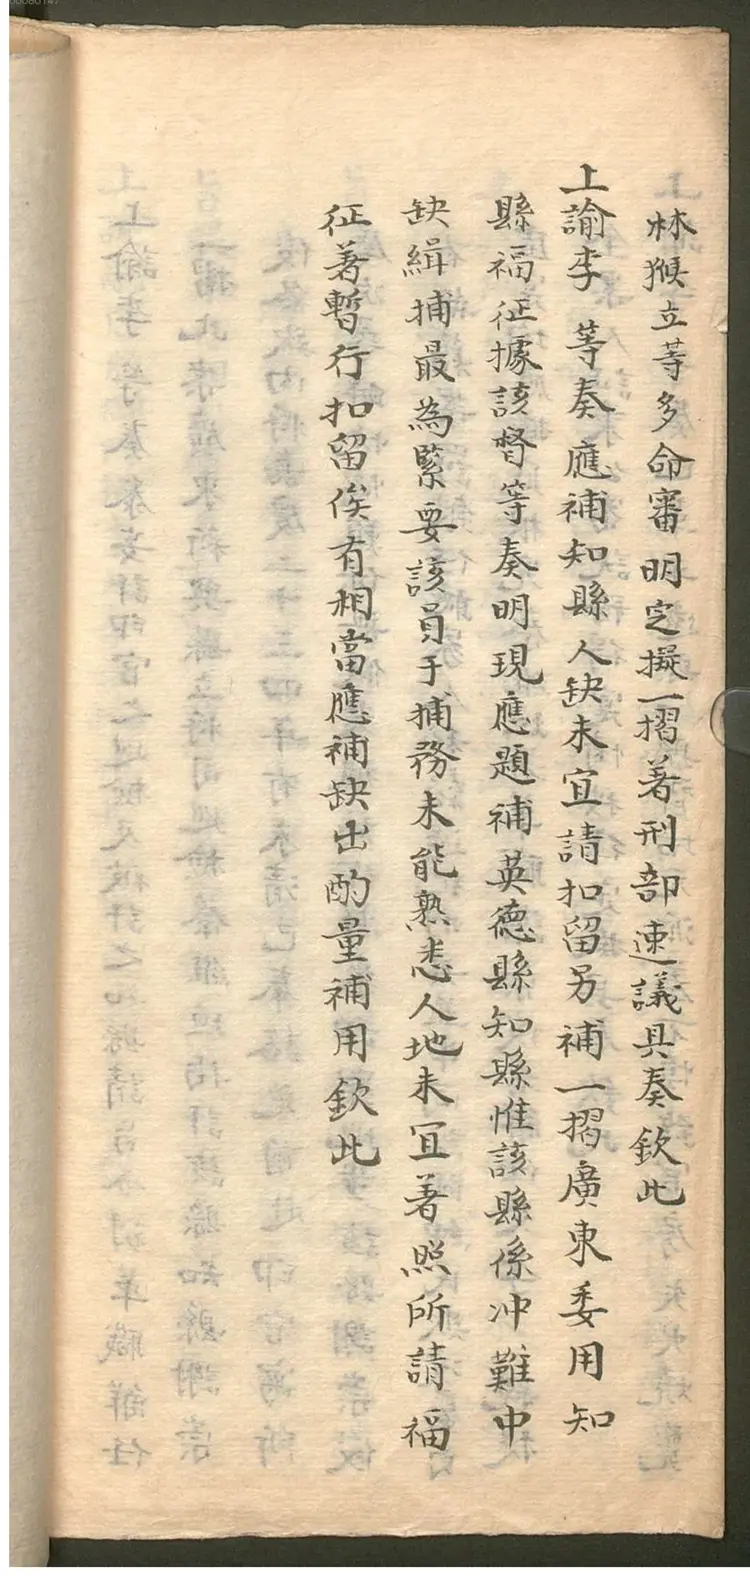 林猴立等多命審明定擬一摺著刑部速議具奏欽此
上諭李 等奏應補知縣人缺未宜請扣留另補一摺廣東委用知
縣福征據該督等奏明現應題補英德縣知縣惟該縣係冲難中
缺緝捕最為緊要該員于捕務未能熟悉人地未宜著照所請福
征著暫行扣留俟有相當應補缺出酌量補用欽此